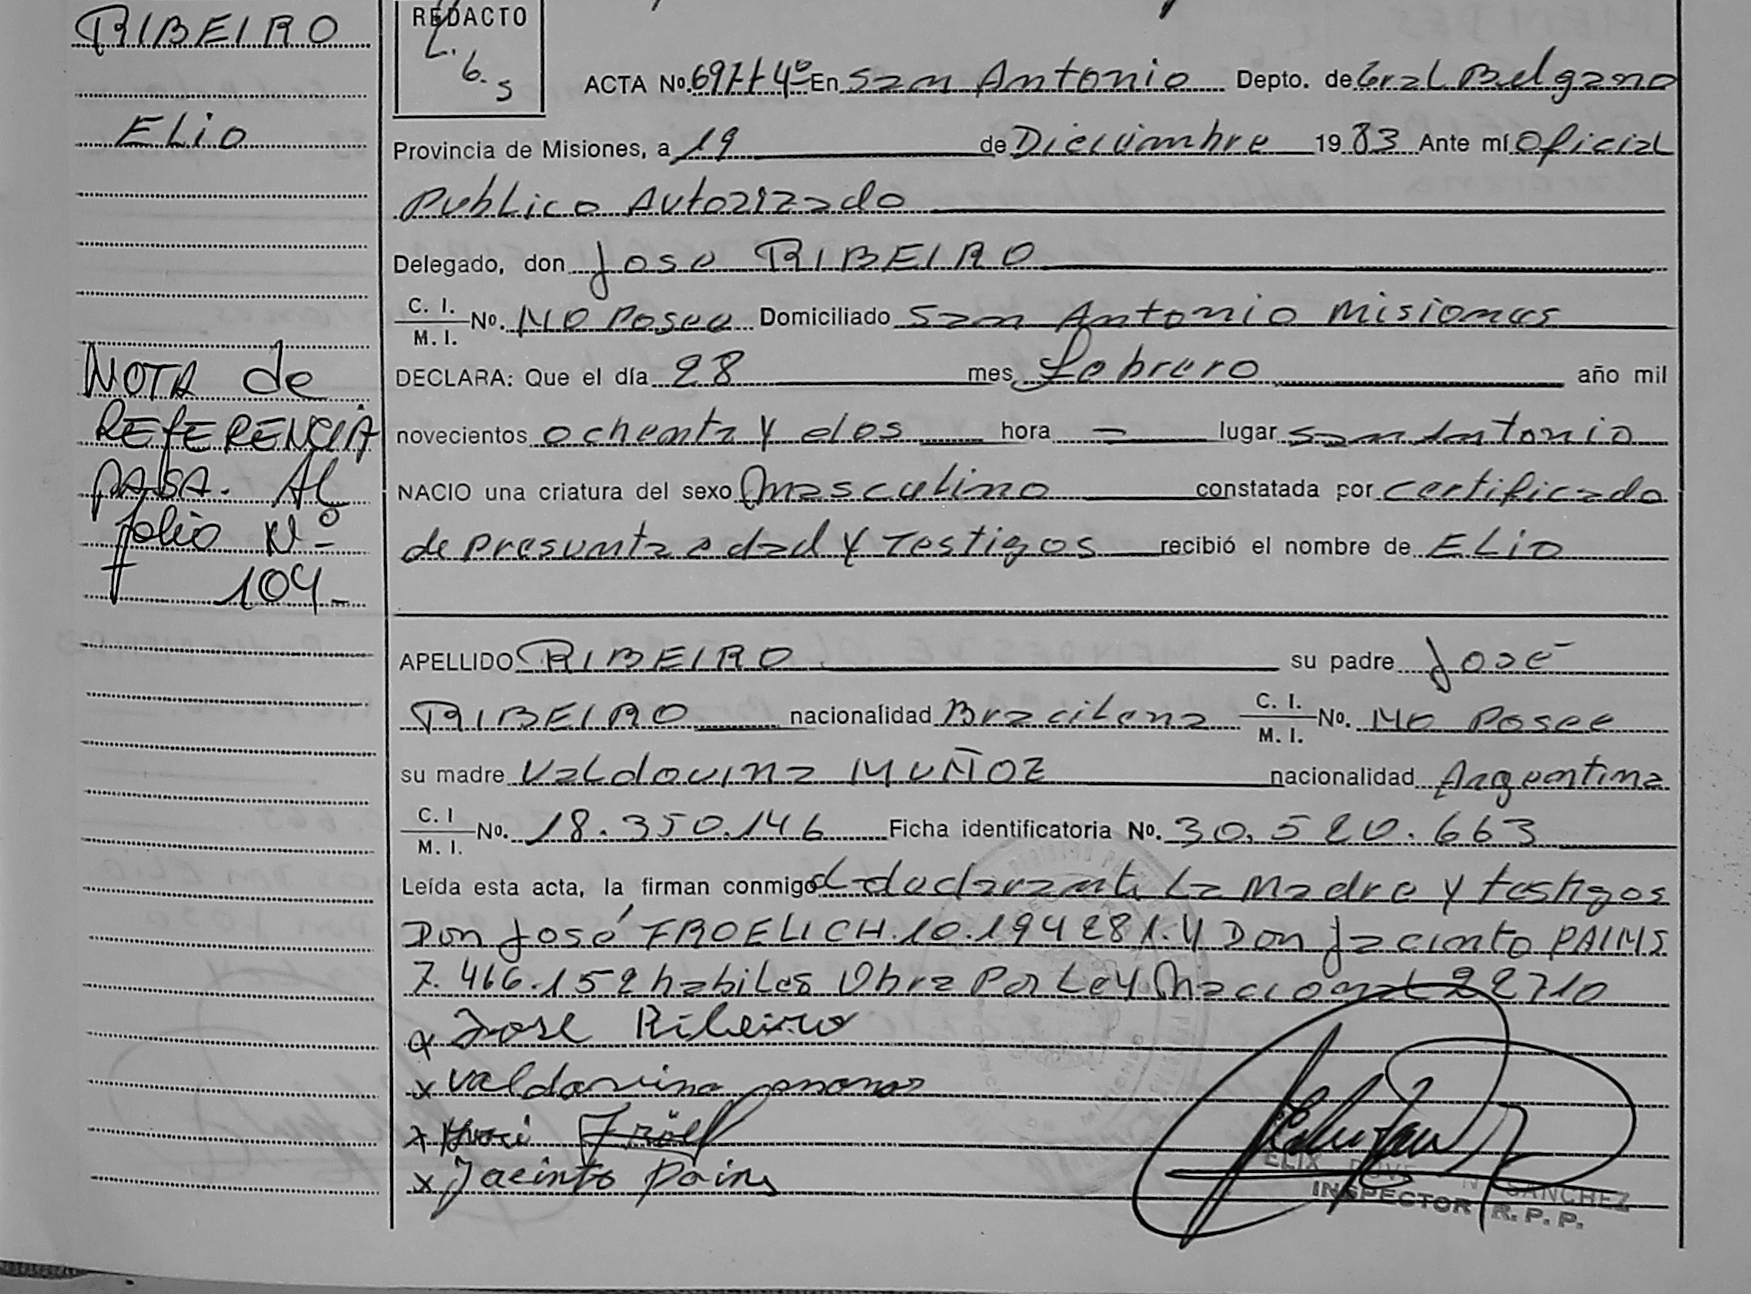 RIBEIRO
ELIO
NOTA de
REFERENCIA
PASA. AL
folio Nº
104-
REDACTO
L.
b.
s
ACTA No. 697 t 4º En San Antonio Depto. de Gral Belgano
Provincia de Misiones, a 19 de Diciembre 19 83 Ante mí Oficial
Publico Autorizado
Delegado, don Jose RIBEIRO
C. I.
M. I. No. NO Posee Domiciliado San Antonio Misiones
DECLARA: Que el día 28 mes febrero año mil
novecientos ochenta y dos hora — lugar San Antonio
NACIO una criatura del sexo Masculino constatada por certificado
de presunta edad y Testigos recibió el nombre de ELIO
APELLIDO RIBEIRO su padre José
RIBEIRO nacionalidad Bracilena C. I.
M. I. No. NO Posee
su madre Valdovina MUÑOZ nacionalidad Argentina
C. I
M. I. No. 18.350.146 Ficha identificatoria No. 30.520.663
Leída esta acta, la firman conmigo el declarante La Madre y testigos
Don José FROELICH. 10.194281. Y Don Jacinto PAIMS.
7.466.152 habiles Obra Por Ley Nacional 22710
x Jose Ribeiro
x valdovina
x
x Jacinto Pains
SANCHEZ
INSPECTOR R. P. P.